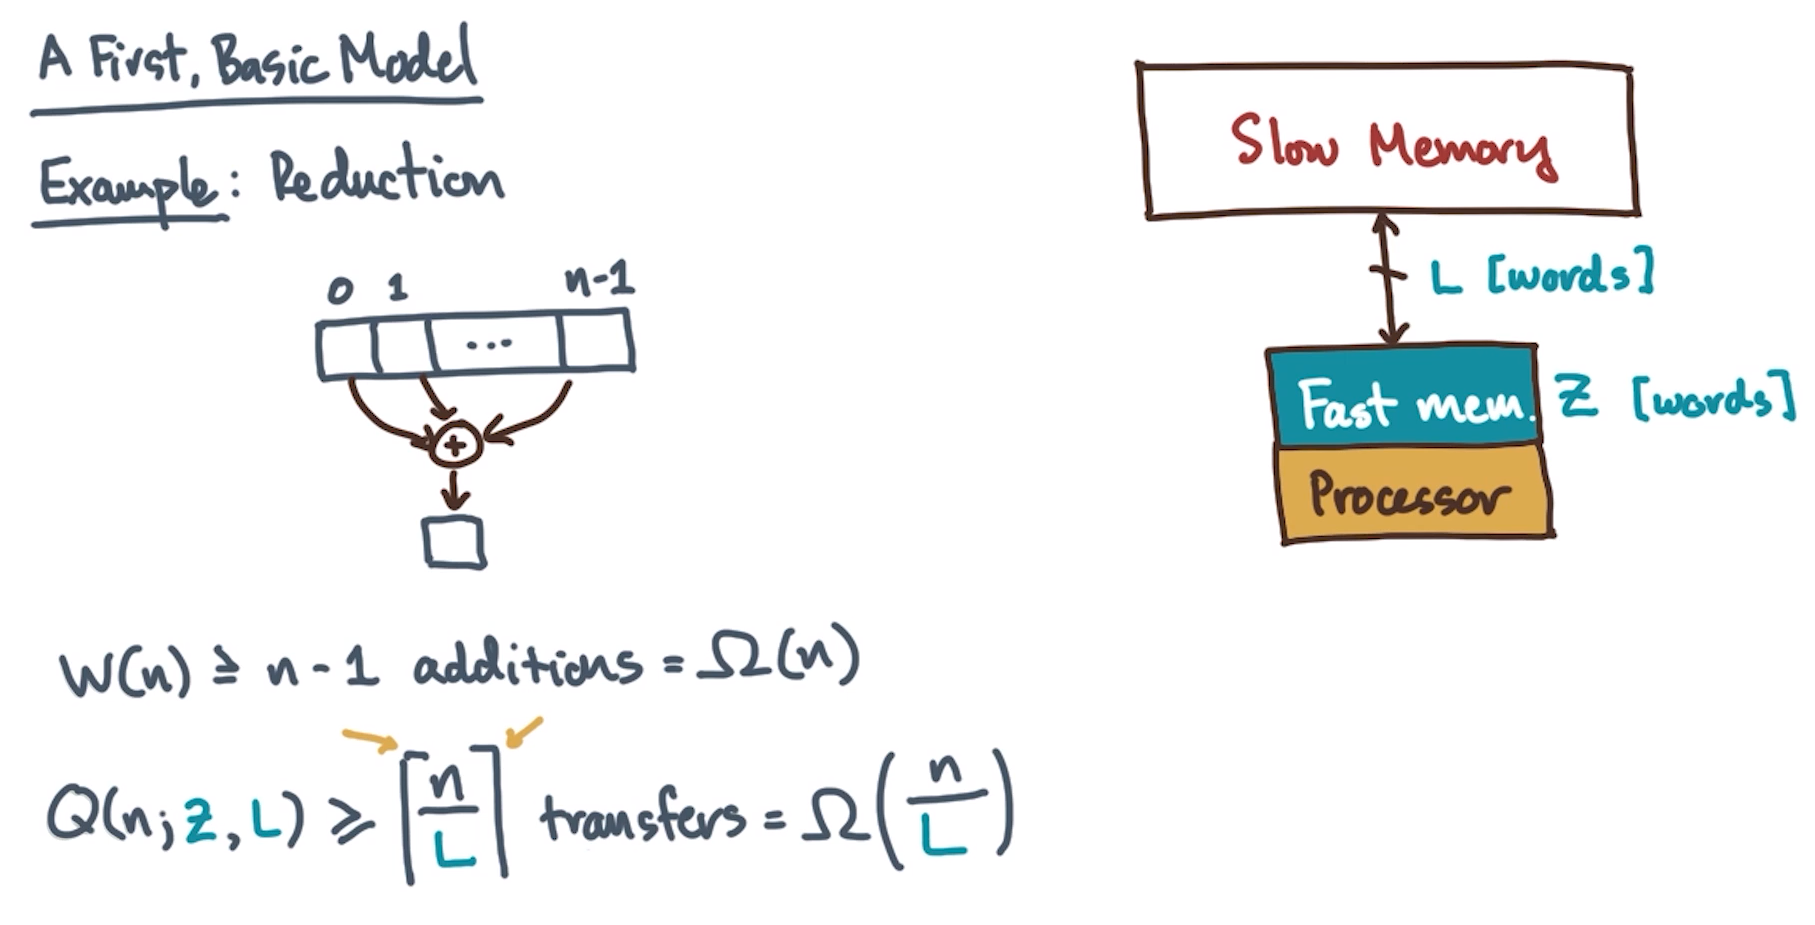 A First, Basic Model
Example: Reduction
0 1 n-1
...
+
W(n) ≥ n - 1 additions = Ω(n)
Q(n; Z, L) ≥ ⌈n/L⌉ transfers = Ω(n/L)
Slow Memory
L [words]
Fast mem. Z [words]
Processor